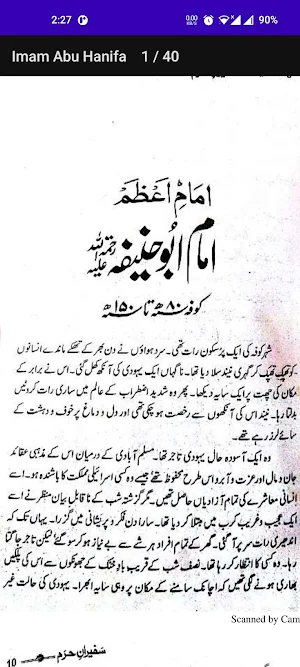 2:27
0.00
KB/S
90%
Imam Abu Hanifa 1 / 40
امام اعظم
امام ابو حنیفہ رحمۃ اللہ علیہ
کوفہ ۸۰ھ تا ۱۵۰ھ
شہر کوفہ کی ایک پُرسکون رات تھی۔ سرد ہواؤں نے دن بھر کے تھکے ماندے انسانوں
کو تھپک تھپک کر گہری نیند سلا دیا تھا۔ ناگہاں ایک یہودی کی آنکھ کھل گئی۔ اس نے برابر کے
مکان کی چھت پر ایک سایہ دیکھا۔ پھر وہ شدید اضطراب کے عالم میں ساری رات کروٹیں
بدلتا رہا۔ نیند اس کی آنکھوں سے رخصت ہو چکی تھی اور دل و دماغ پر خوف و دہشت کے
سائے لرز رہے تھے۔
وہ ایک آسودہ حال یہودی تاجر تھا۔ مسلم آبادی کے درمیان اس کے مذہبی عقائد
جان و مال اور عزت و آبرو اس طرح محفوظ تھے جیسے وہ کسی اسرائیلی مملکت کا باشندہ ہو۔ اسے
انسانی معاشرے کی تمام آزادیاں حاصل تھیں۔ مگر گزشتہ شب کے ناقابلِ بیان منظر نے اسے
ایک عجیب و غریب کرب میں مبتلا کر دیا تھا۔ سارا دن فکر و پریشانی میں گزرا۔ یہاں تک کہ
اندھیری رات سر پر آ گئی۔ گھر کے تمام افراد ہر شے سے بے نیاز ہو کر سو گئے لیکن تاجر جاگتا
رہا۔ وہ کسی کا انتظار کر رہا تھا۔ نصف شب کے قریب بادِ خنک کے جھونکوں سے اس کی پلکیں
بھاری ہونے لگی تھیں کہ اچانک سامنے کے مکان پر وہی سایہ ابھرا۔ یہودی کی حالت غیر
Scanned by Cam
سفیرانِ حرم 10